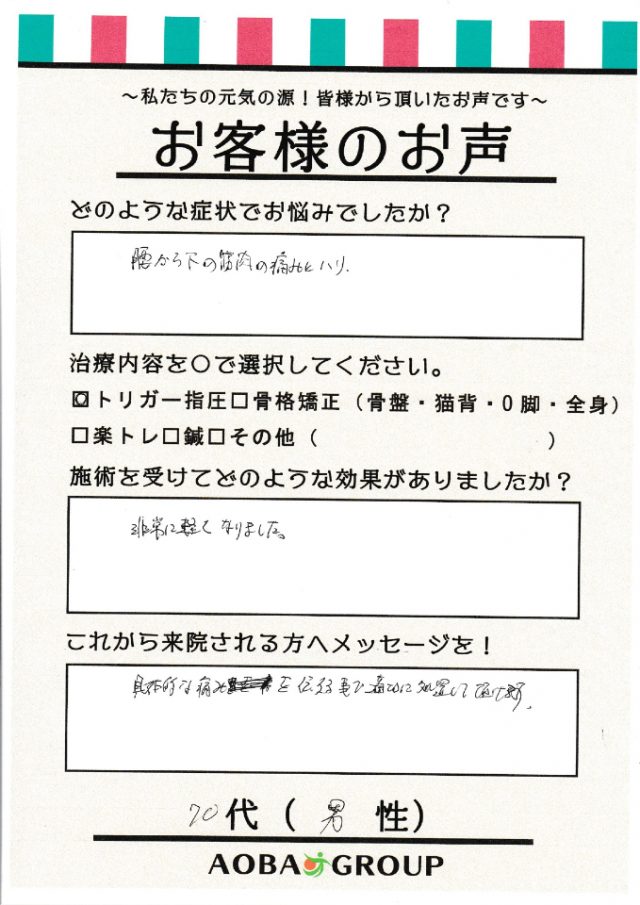 ～私たちの元気の源！皆様から頂いたお声です～
お客様のお声
どのような症状でお悩みでしたか？
腰から下の筋肉の痛みとハリ.
治療内容を〇で選択してください。
☒トリガー指圧□骨格矯正（骨盤・猫背・O脚・全身）
□楽トレ□鍼□その他（　　　　　　　　　　）
施術を受けてどのような効果がありましたか？
非常に軽くなりました。
これから来院される方へメッセージを！
具体的な痛み を伝える事で適切に処置して頂けます.
70代（男性）
AOBA GROUP